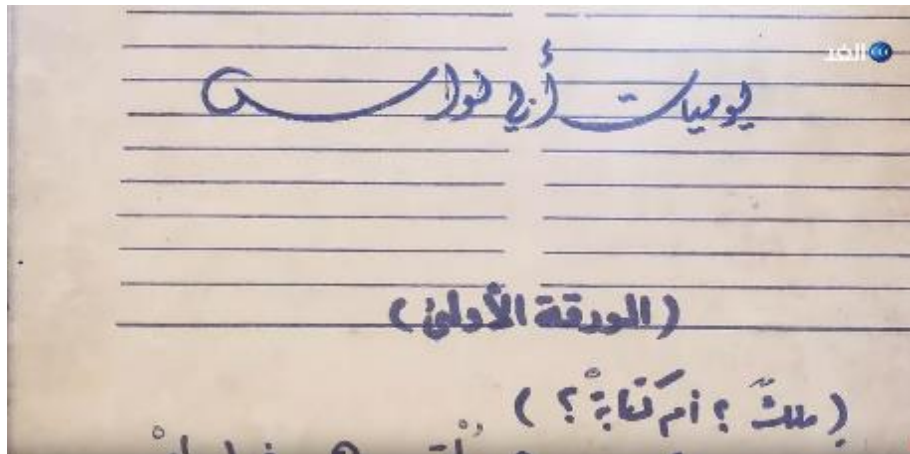 الغد
يوميات أبي نواس
(الورقة الأولى)
(ملكٌ ؟ أم كتابةٌ ؟)